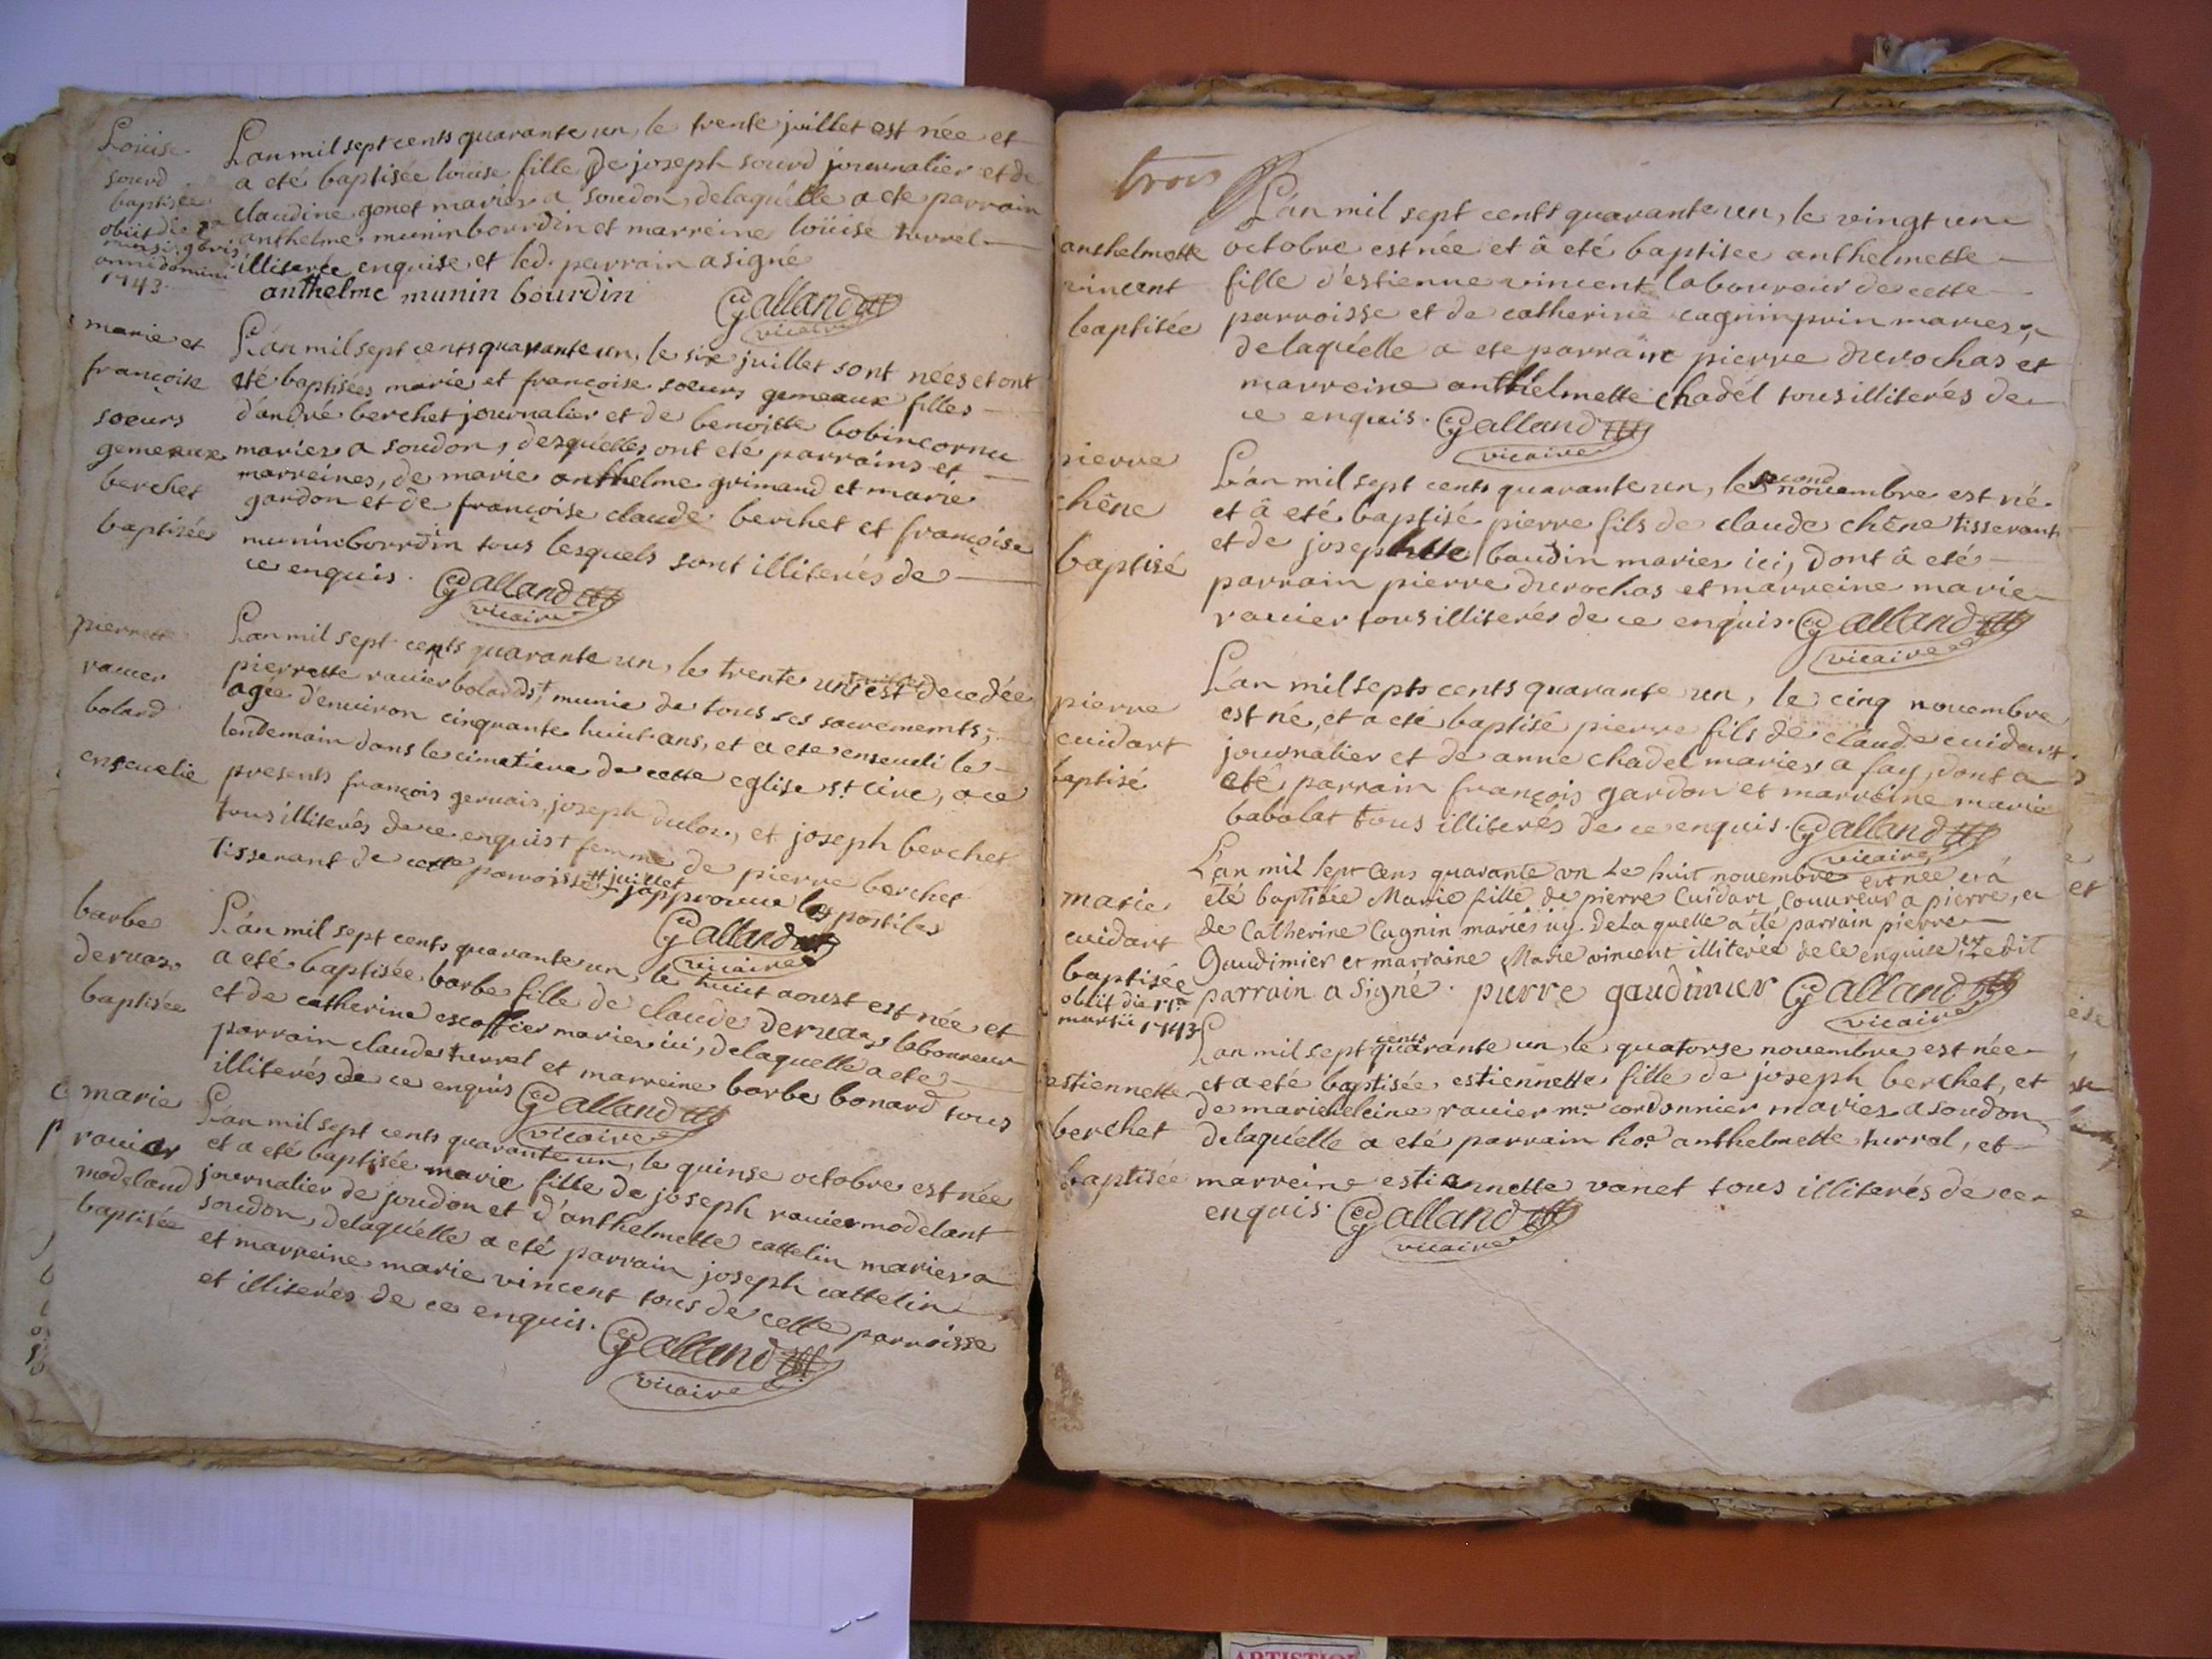 Loüise
sourd
baptisée
obiit die
anni domini
1743
L'an mil sept cents quarante un, le trente juillet est née et
a eté baptisée loüise fille de joseph sourd journalier et de
claudine gonet mariés a soudon, delaquélle a ete parrain
anthelme muninbourdin et marreine loüise turrel
illiterée enquise et led. parrain a signé
anthelme munin bourdin
Galland
vicaire
marie et
françoise
soeurs
gemeaux
berchet
baptisées
L'an mil sept cents quarante un, le six juillet sont nées et ont
été baptisées marie et françoise soeurs gemeaux filles
d'andré berchet journalier et de benoitte bobincornu
maries a soudon, desquélles ont eté parrains et
marreines, de marie anthelme grimaud et marie
gardon et de françoise claude berchet et françoise
muninbourdin tous lesquels sont illiterés de
ce enquis. Galland
vicaire
pierrette
rauier
bolard
enseuelie
L'an mil sept cents quarante un, le trente un est decedée
pierrette rauier bolard+, munie de tous ses sacrements,
agée d'enuiron cinquante huit ans, et a ete enseueli le
lendemain dans le cimetiere de cette eglise st cire, a ce
presents françois geruais, joseph dulor, et joseph berchet
tous illiterés de ce enquis + femme de pierre berchet
tisserant de cette parroisse ++ juillet
japprouue les postiles
Galland
vicaire
barbe
deruas
baptisée
L'an mil sept cents quarante un, le huit aoust est née et
a eté baptisée barbe fille de claude deruas laboureur
et de catherine escoffier mariés ici, delaquelle a eté
parrain claude turrel et marreine barbe bonard tous
illiterés de ce enquis Galland
vicaire
marie
rauier
modeland
baptisée
L'an mil sept cents quarante un, le quinse octobre est née
et a eté baptisée marie fille de joseph rauiermodelant
journalier de joudon et d'anthelmette cattelin maries a
soudon, delaquélle a eté parrain joseph cattelin
et marreine marie vincent tous de cette parroisse
et illiterés de ce enquis.
Galland
vicaire
trois
anthelmette
vincent
baptisée
L'an mil sept cents quarante un, le vingt un
octobre est née et â eté baptisee anthelmette
fille d'estienne vincent laboureur de cette
parroisse et de catherine cagninprin maries,
delaquélle a ete parrain pierre durochas et
marreine anthelmette chadél tous illiterés de
ce enquis. Galland
vicaire
pierre
chêne
baptisé
L'an mil sept cents quarante un, le second nouembre est né
et â eté baptisé pierre fils de claude chêne tisserant
et de josephtte baudin maries ici, dont â eté
parrain pierre durochas et marreine marie
rauier tous illiterés de ce enquis. Galland
vicaire
pierre
cuidart
baptisé
L'an mil sept cents quarante un, le cinq nouembre
est né, et a eté baptisé pierre fils de claude cuidart
journalier et de anne chadel maries a fay, dont a
eté parrain françois gardon et marreine marie
babolat tous illiterés de ce enquis. Galland
vicaire
marie
cuidart
baptisée
obiit die
martii 1743
L'an mil sept cens quarante un Le huit nouembre est née et à
eté baptisée Marie fille de pierre Cuidart Couureur a pierre, et
de Catherine Cagnin mariés icy. De Laquelle a été parrain pierre
Gaudimier et marraine Marie vincent illiterée de ce enquise, et Ledit
parrain a Signé. pierre gaudimier Galland
vicaire
estiennette
berchet
baptisée
L'an mil sept cents quarante un, le quatorse nouembre est née
et a eté baptisée estiennette fille de joseph berchet, et
de marieheleine rauier me cordonnier maries a soudon
delaquélle a eté parrain hor anthelmette turral, et
marreine estiennette vanet tous illiterés de ce
enquis. Galland
vicaire